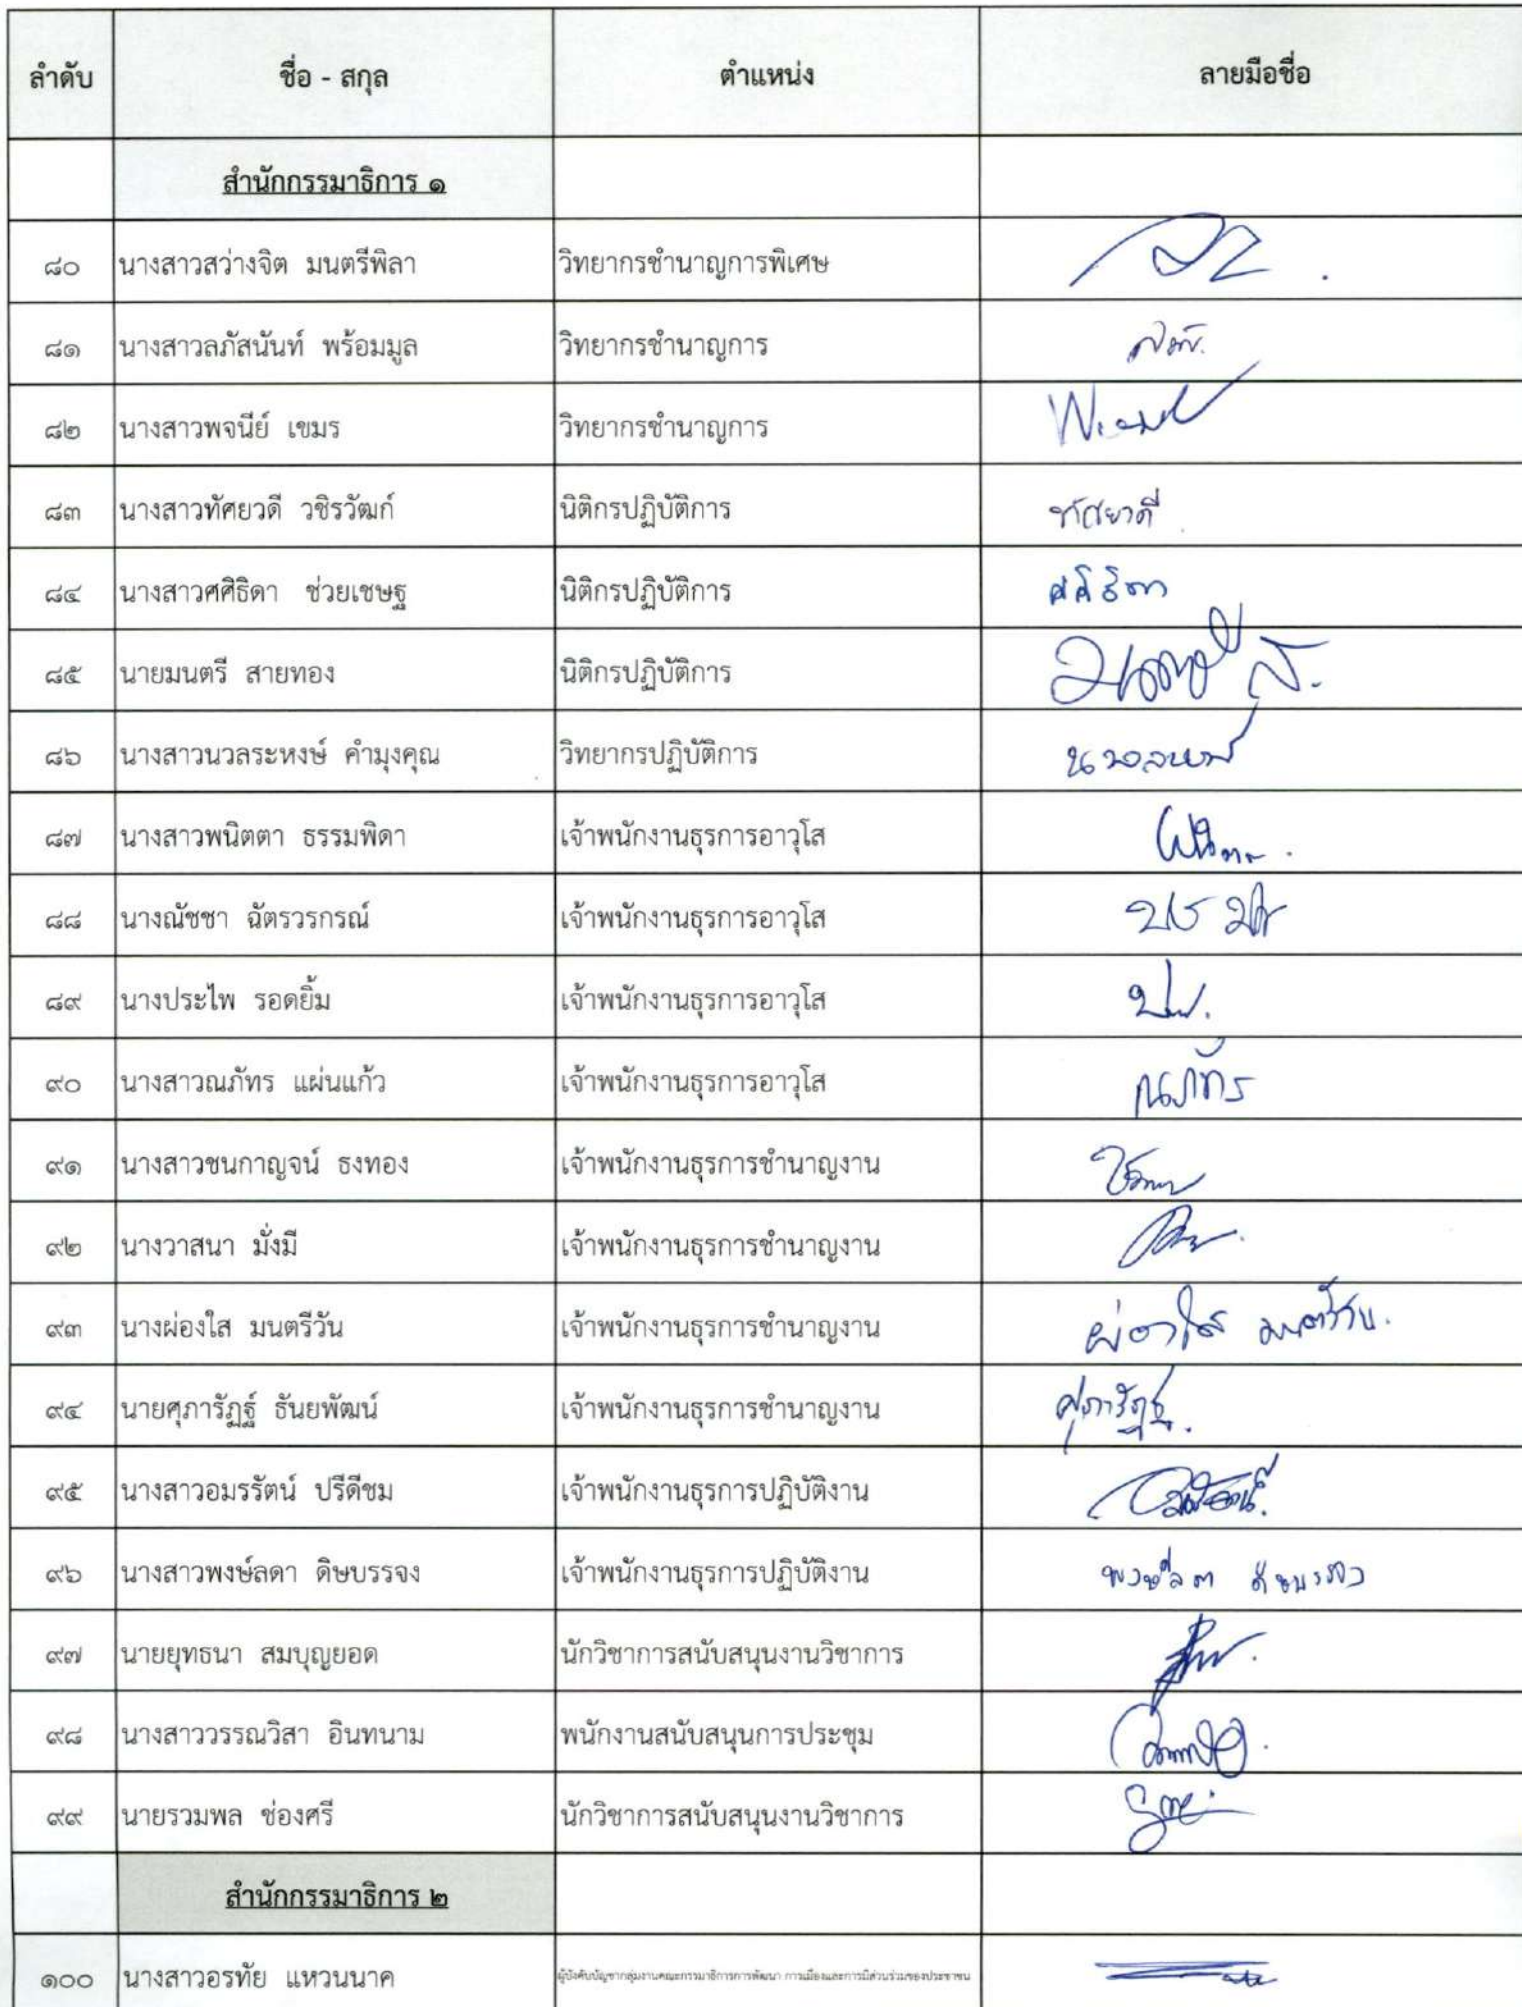 ลำดับ ชื่อ - สกุล ตำแหน่ง ลายมือชื่อ
สำนักกรรมาธิการ ๑
๘๐ นางสาวสว่างจิต มนตรีพิลา วิทยากรชำนาญการพิเศษ
๘๑ นางสาวลภัสนันท์ พร้อมมูล วิทยากรชำนาญการ
๘๒ นางสาวพจนีย์ เขมร วิทยากรชำนาญการ
๘๓ นางสาวทัศยวดี วชิรวัฒก์ นิติกรปฏิบัติการ ทัศยวดี
๘๔ นางสาวศศิธิดา ช่วยเชษฐ นิติกรปฏิบัติการ ศศิธิดา
๘๕ นายมนตรี สายทอง นิติกรปฏิบัติการ มนตรี ส.
๘๖ นางสาวนวลระหงษ์ คำมุงคุณ วิทยากรปฏิบัติการ
๘๗ นางสาวพนิตตา ธรรมพิดา เจ้าพนักงานธุรการอาวุโส
๘๘ นางณัชชา ฉัตรวรกรณ์ เจ้าพนักงานธุรการอาวุโส
๘๙ นางประไพ รอดยิ้ม เจ้าพนักงานธุรการอาวุโส
๙๐ นางสาวณภัทร แผ่นแก้ว เจ้าพนักงานธุรการอาวุโส ณภัทร
๙๑ นางสาวชนกาญจน์ ธงทอง เจ้าพนักงานธุรการชำนาญงาน
๙๒ นางวาสนา มั่งมี เจ้าพนักงานธุรการชำนาญงาน
๙๓ นางผ่องใส มนตรีวัน เจ้าพนักงานธุรการชำนาญงาน ผ่องใส มนตรีวัน.
๙๔ นายศุภารัฏฐ์ ธันยพัฒน์ เจ้าพนักงานธุรการชำนาญงาน ศุภารัฏฐ์.
๙๕ นางสาวอมรรัตน์ ปรีดีชม เจ้าพนักงานธุรการปฏิบัติงาน
๙๖ นางสาวพงษ์ลดา ดิษบรรจง เจ้าพนักงานธุรการปฏิบัติงาน พงษ์ลดา ดิษบรรจง
๙๗ นายยุทธนา สมบุญยอด นักวิชาการสนับสนุนงานวิชาการ
๙๘ นางสาววรรณวิสา อินทนาม พนักงานสนับสนุนการประชุม
๙๙ นายรวมพล ช่องศรี นักวิชาการสนับสนุนงานวิชาการ
สำนักกรรมาธิการ ๒
๑๐๐ นางสาวอรทัย แหวนนาค ผู้บังคับบัญชากลุ่มงานคณะกรรมาธิการการพัฒนา การเมืองและการมีส่วนร่วมของประชาชน